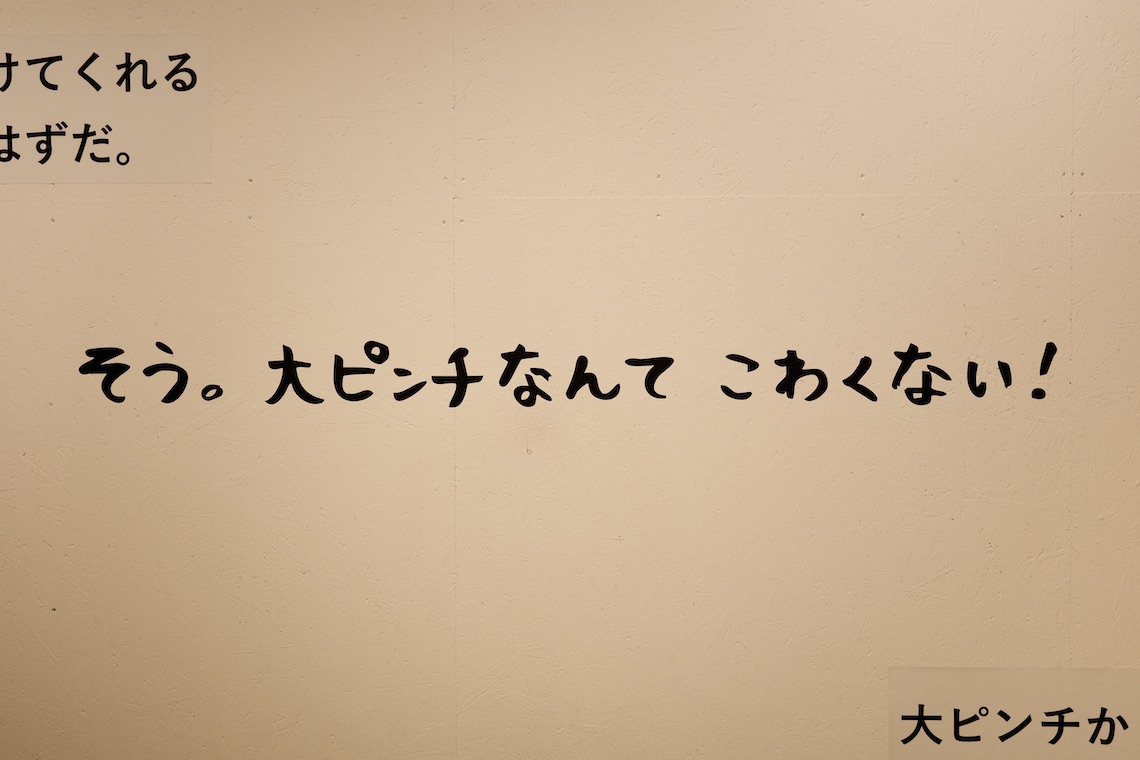 けてくれる
はずだ。
そう。大ピンチなんて こわくない!
大ピンチか